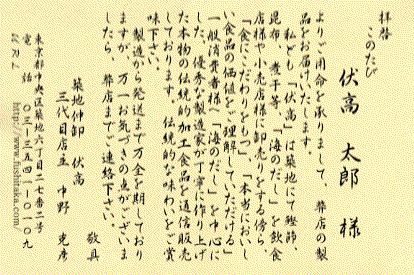 拝啓
このたび
伏高 太郎 様
よりご用命を承りまして、弊店の製
品をお届けいたします。
私ども「伏高」は築地にて鰹節、
昆布、煮干等、「海のだし」を飲食
店様や小売店様に卸売りをする傍ら、
「食にこだわりをもつ」、「本当においし
い食品の価値をご理解していただける」
一般消費者様へ「海のだし」を中心に
した、優秀な製造家が丁寧に作り上げ
た本物の伝統的加工食品を通信販売
しております。伝統的な味わいをご賞
味下さい。
製造から発送まで万全を期しており
ますが、万一お気づきの点がございま
したら、弊店までご連絡下さい。
敬具
築地仲卸 伏高
三代目店主 中野 克彦
東京都中央区築地六丁目二七番二号
電話 〇三-
URL http://www.fushitaka.com/